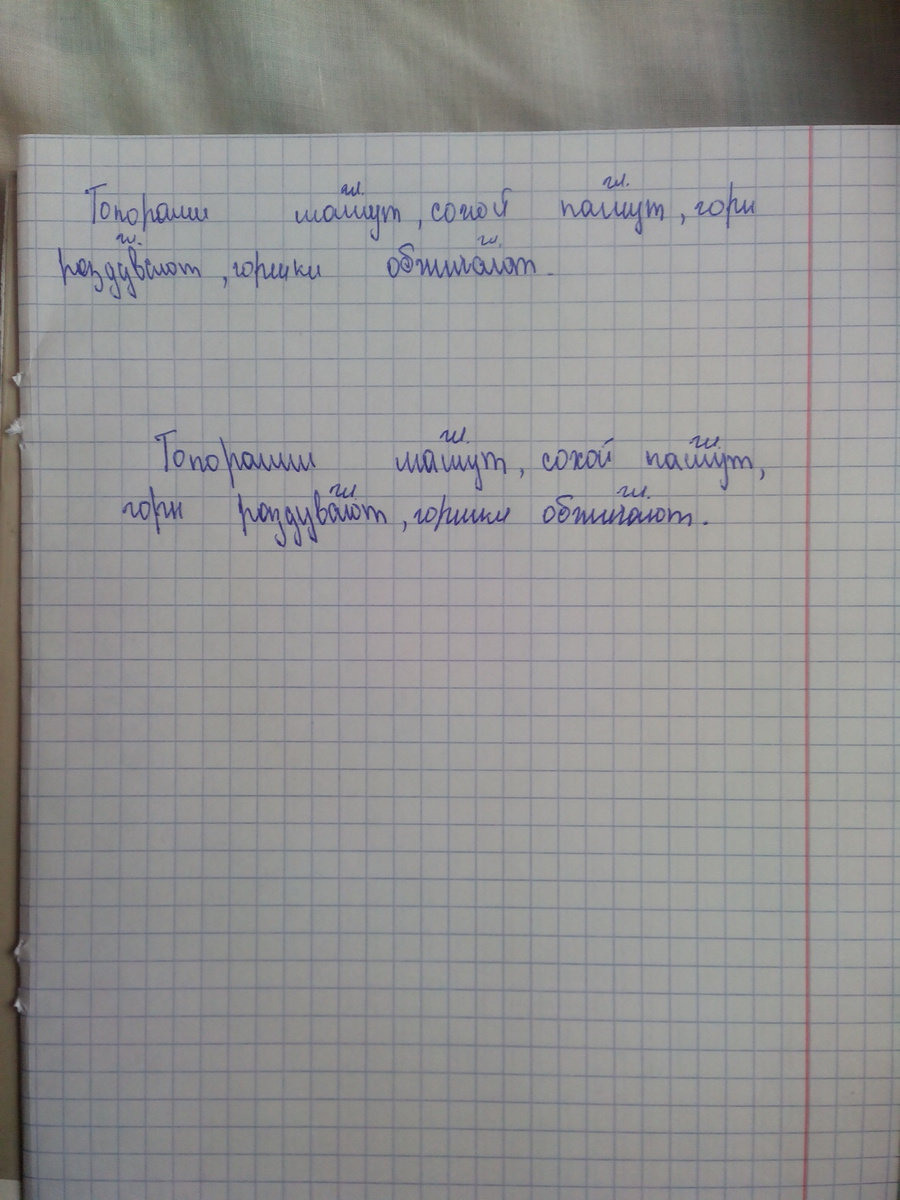 гл. гл.
Топорами машут, сохой пашут, горн
гл. гл.
раздувают, горшки обжигают.
гл. гл.
Топорами машут, сохой пашут,
гл. гл.
горн раздувают, горшки обжигают.